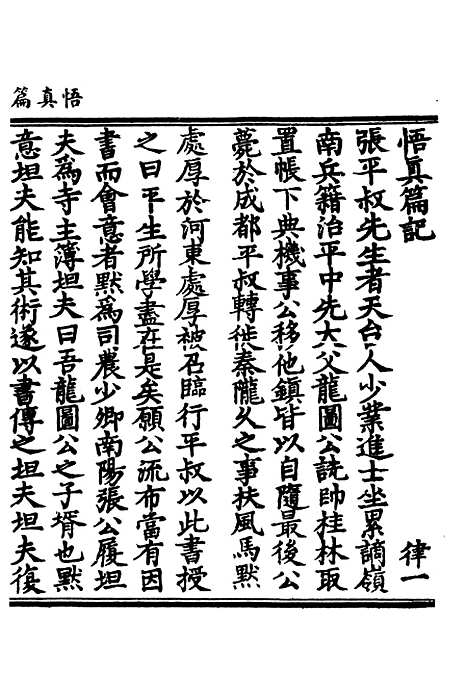 悟真篇
悟真篇記　律一
張平叔先生者天台人少業進士坐累謫嶺
南兵籍治平中先大父龍圖公詵帥桂林取
置帳下典機事公移他鎮皆以自隨最後公
薨於成都平叔轉徙秦隴久之事扶風馬默
處厚於河東處厚被召臨行平叔以此書授
之曰平生所學盡在是矣願公流布當有因
書而會意者默爲司農少卿南陽張公履坦
夫爲寺主簿坦夫曰吾龍圖公之子壻也默
意坦夫能知其術遂以書傳之坦夫坦夫復